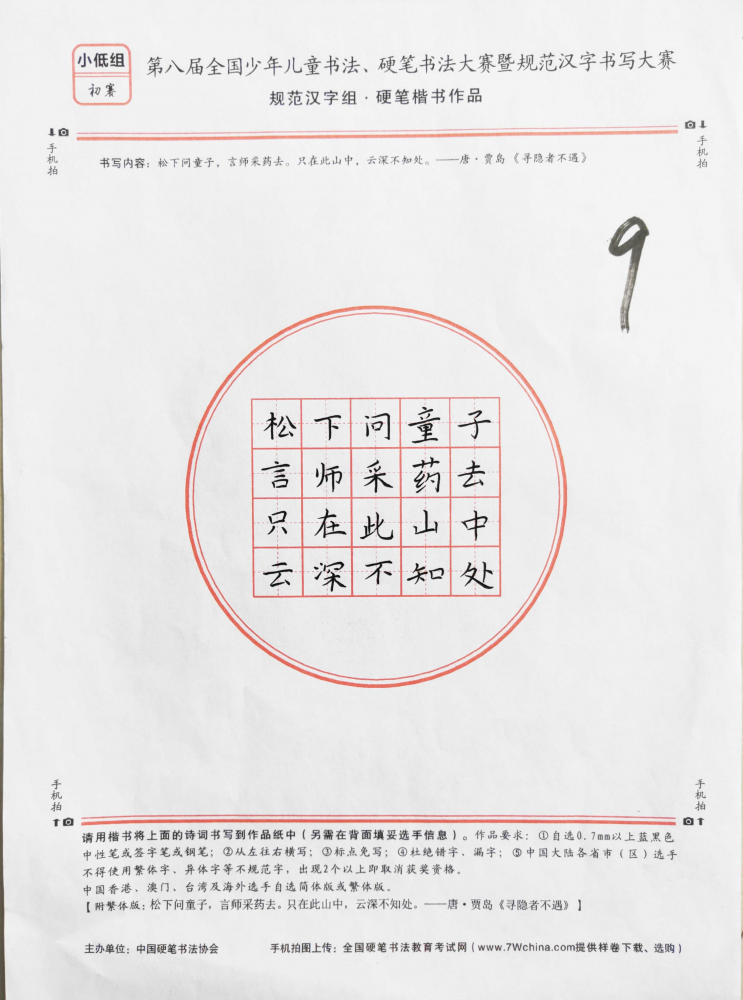 小低组
初赛
第八届全国少年儿童书法、硬笔书法大赛暨规范汉字书写大赛
规范汉字组·硬笔楷书作品
手机拍
手机拍
书写内容：松下问童子，言师采药去。只在此山中，云深不知处。——唐·贾岛《寻隐者不遇》
9
松下问童子
言师采药去
只在此山中
云深不知处
手机拍
手机拍
请用楷书将上面的诗词书写到作品纸中（另需在背面填妥选手信息）。作品要求：①自选0.7mm以上蓝黑色
中性笔或签字笔或钢笔；②从左往右横写；③标点免写；④杜绝错字、漏字；⑤中国大陆各省市（区）选手
不得使用繁体字、异体字等不规范字，出现2个以上即取消获奖资格。
中国香港、澳门、台湾及海外选手自选简体版或繁体版。
【附繁体版：松下问童子，言师采药去。只在此山中，云深不知处。——唐·贾岛《寻隐者不遇》】
主办单位：中国硬笔书法协会 手机拍图上传：全国硬笔书法教育考试网（www.7Wchina.com提供样卷下载、选购）